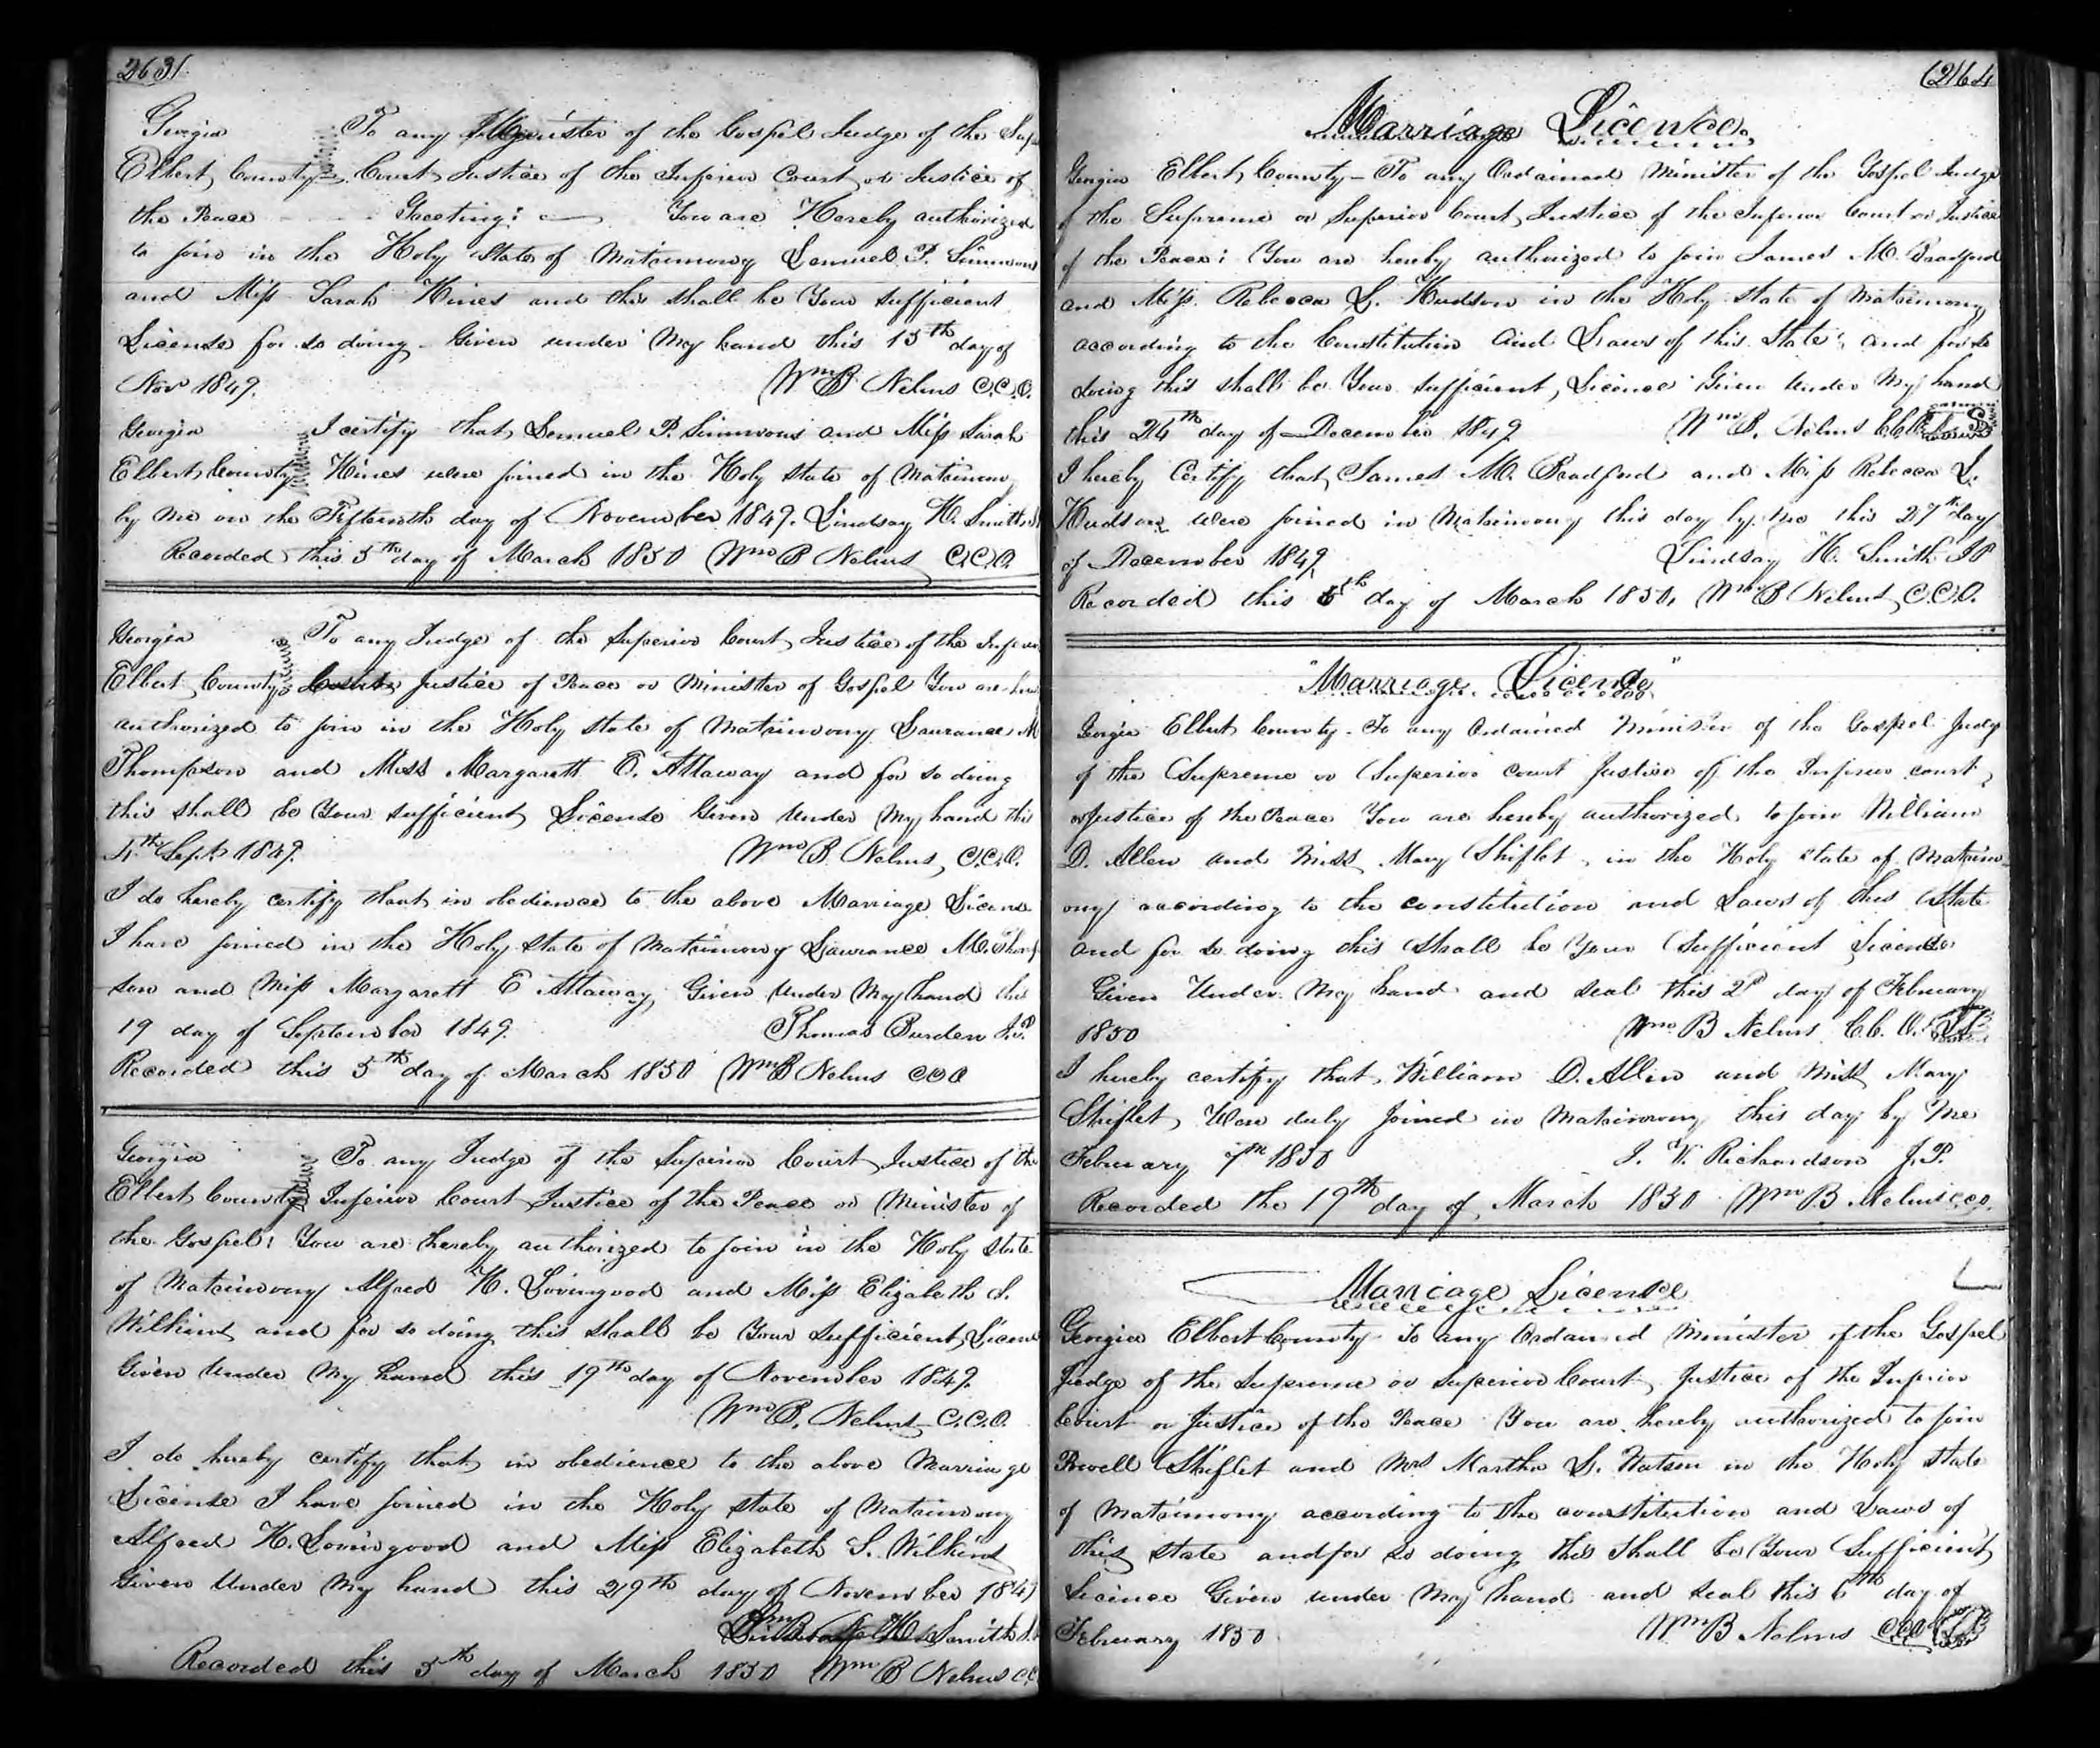 263
Georgia To any Minister of the Gospel Judge of the Sup
Elbert County Court Justice of the Inferior Court or Justice of
the Peace Greeting: You are Hereby authorized
to join in the Holy State of Matrimony Lemuel P. Simmons
and Miss Sarah Hines and this shall be Your sufficient
License for so doing Given under My hand this 15th day of
Nov 1849. Wm B Nelms C.C.O.
Georgia I certify that Lemuel P. Simmons and Miss Sarah
Elbert County Hines were joined in the Holy State of Matrimony
by Me on the Fifteenth day of November 1849. Lindsay H. Smith
Recorded this 5th day of March 1850 Wm B Nelms C.C.O.
Georgia To any Judge of the Superior Court Justice of the Inferior
Elbert County Court Justice of Peace or Minister of Gospel You are
authorized to join in the Holy State of Matrimony Laurance M
Thompson and Miss Margarett E. Attaway and for so doing
this shall be Your sufficient License Given Under My hand this
4th Sept 1849. Wm B. Nelms, C.C.O.
I do hereby certify that in obedience to the above Marriage License
I have joined in the Holy State of Matrimony Laurance M. Thomp
son and Miss Margarett E Attaway Given Under My hand this
19 day of September 1849. Thomas Burden J.P.
Recorded this 5th day of March 1850 Wm B Nelms CCO
Georgia To any Judge of the Superior Court Justice of the
Elbert County Inferior Court Justice of the Peace or Minister of
the Gospel: You are hereby authorized to join in the Holy State
of Matrimony Alfred H. Lovingood and Miss Elizabeth S.
Wilkins and for so doing this shall be Your sufficient License
Given Under My Hand this 19th day of November 1849.
Wm B. Nelms C.C.O.
I do hereby certify that in obedience to the above Marriage
License I have joined in the Holy State of Matrimony
Alfred H. Lovingood and Miss Elizabeth S. Wilkins
Given Under My hand this 29th day of November 1849
Smith
Recorded this 5th day of March 1850 Wm B Nelms C.C
(264
Marriage Licence
Georgia Elbert County - To any Ordained Minister of the Gospel Judge
of the Supreme or Superior Court Justice of the Inferior Court or Justice
of the Peace: You are hereby authorized to join James M. Bradford
and Miss. Rebecca L. Hudson in the Holy State of Matrimony
according to the Constitution and Laws of this State, and for so
doing this shall be Your sufficient, Licence Given Under My hand
this 24th day of December 1849 Wm B. Nelms CCO L.S
I hereby Certify that James M. Bradford and Miss Rebecca L.
Hudson were joined in Matrimony this day by me this 27th day
of December 1849. Lindsay H. Smith JP
Recorded this 5th day of March 1850, Wm B Nelms C.C.O.
"Marriage Licence"
Georgia Elbert County - To any Ordained Minister of the Gospel Judge
of the Supreme or Superior court Justice of the Inferior court,
or Justice of the Peace You are hereby authorized to join William
D. Allen and Miss Mary Shiflet, in the Holy state of Matrim-
ony according to the constitution and Laws of this State
and for so doing this shall be Your Sufficient License
Given Under My hand and seal this 2d day of February
1850 Wm B Nelms C.C.O. L.S
I hereby certify that William D. Allen and Miss Mary
Shiflet, Were duly joined in Matrimony this day by Me
February 7th 1850 J. V. Richardson J.P.
Recorded the 19th day of March 1850 Wm B Nelms CCO.
Marriage License
Georgia Elbert County To any Ordained Minister of the Gospel
Judge of the Supreme or Superior Court Justice of the Inferior
Court or Justice of the Peace You are hereby authorized to join
Powell Shiflet and Mrs Martha S. Watson in the Holy State
of Matrimony according to the constitution and Laws of
this state and for so doing this shall be Your Sufficient
Licence Given under My hand and seal this 6th day of
February 1850 Wm B Nelms CCO L.S